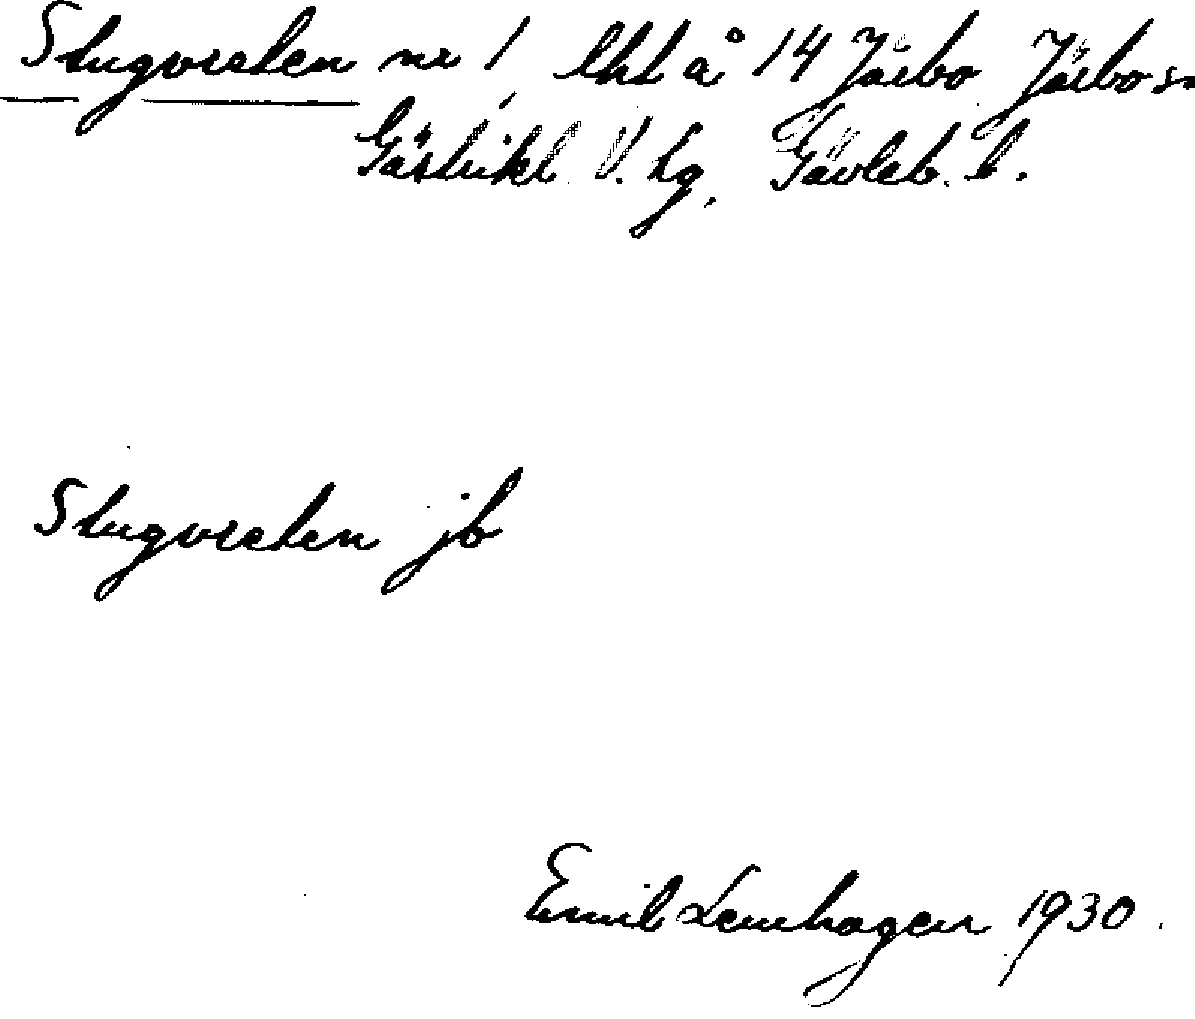 Stugvreten nr 1, lht å 14 Järbo Järbo sn
Gästrikl. V. hg, Gävleb. l.
Stugvreten jb
Emil Lenhagen 1930.